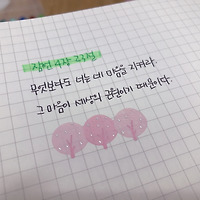 잠언 4장 23절
무엇보다도 너는 네 마음을 지켜라.
그 마음이 생명의 근원이기 때문이다.